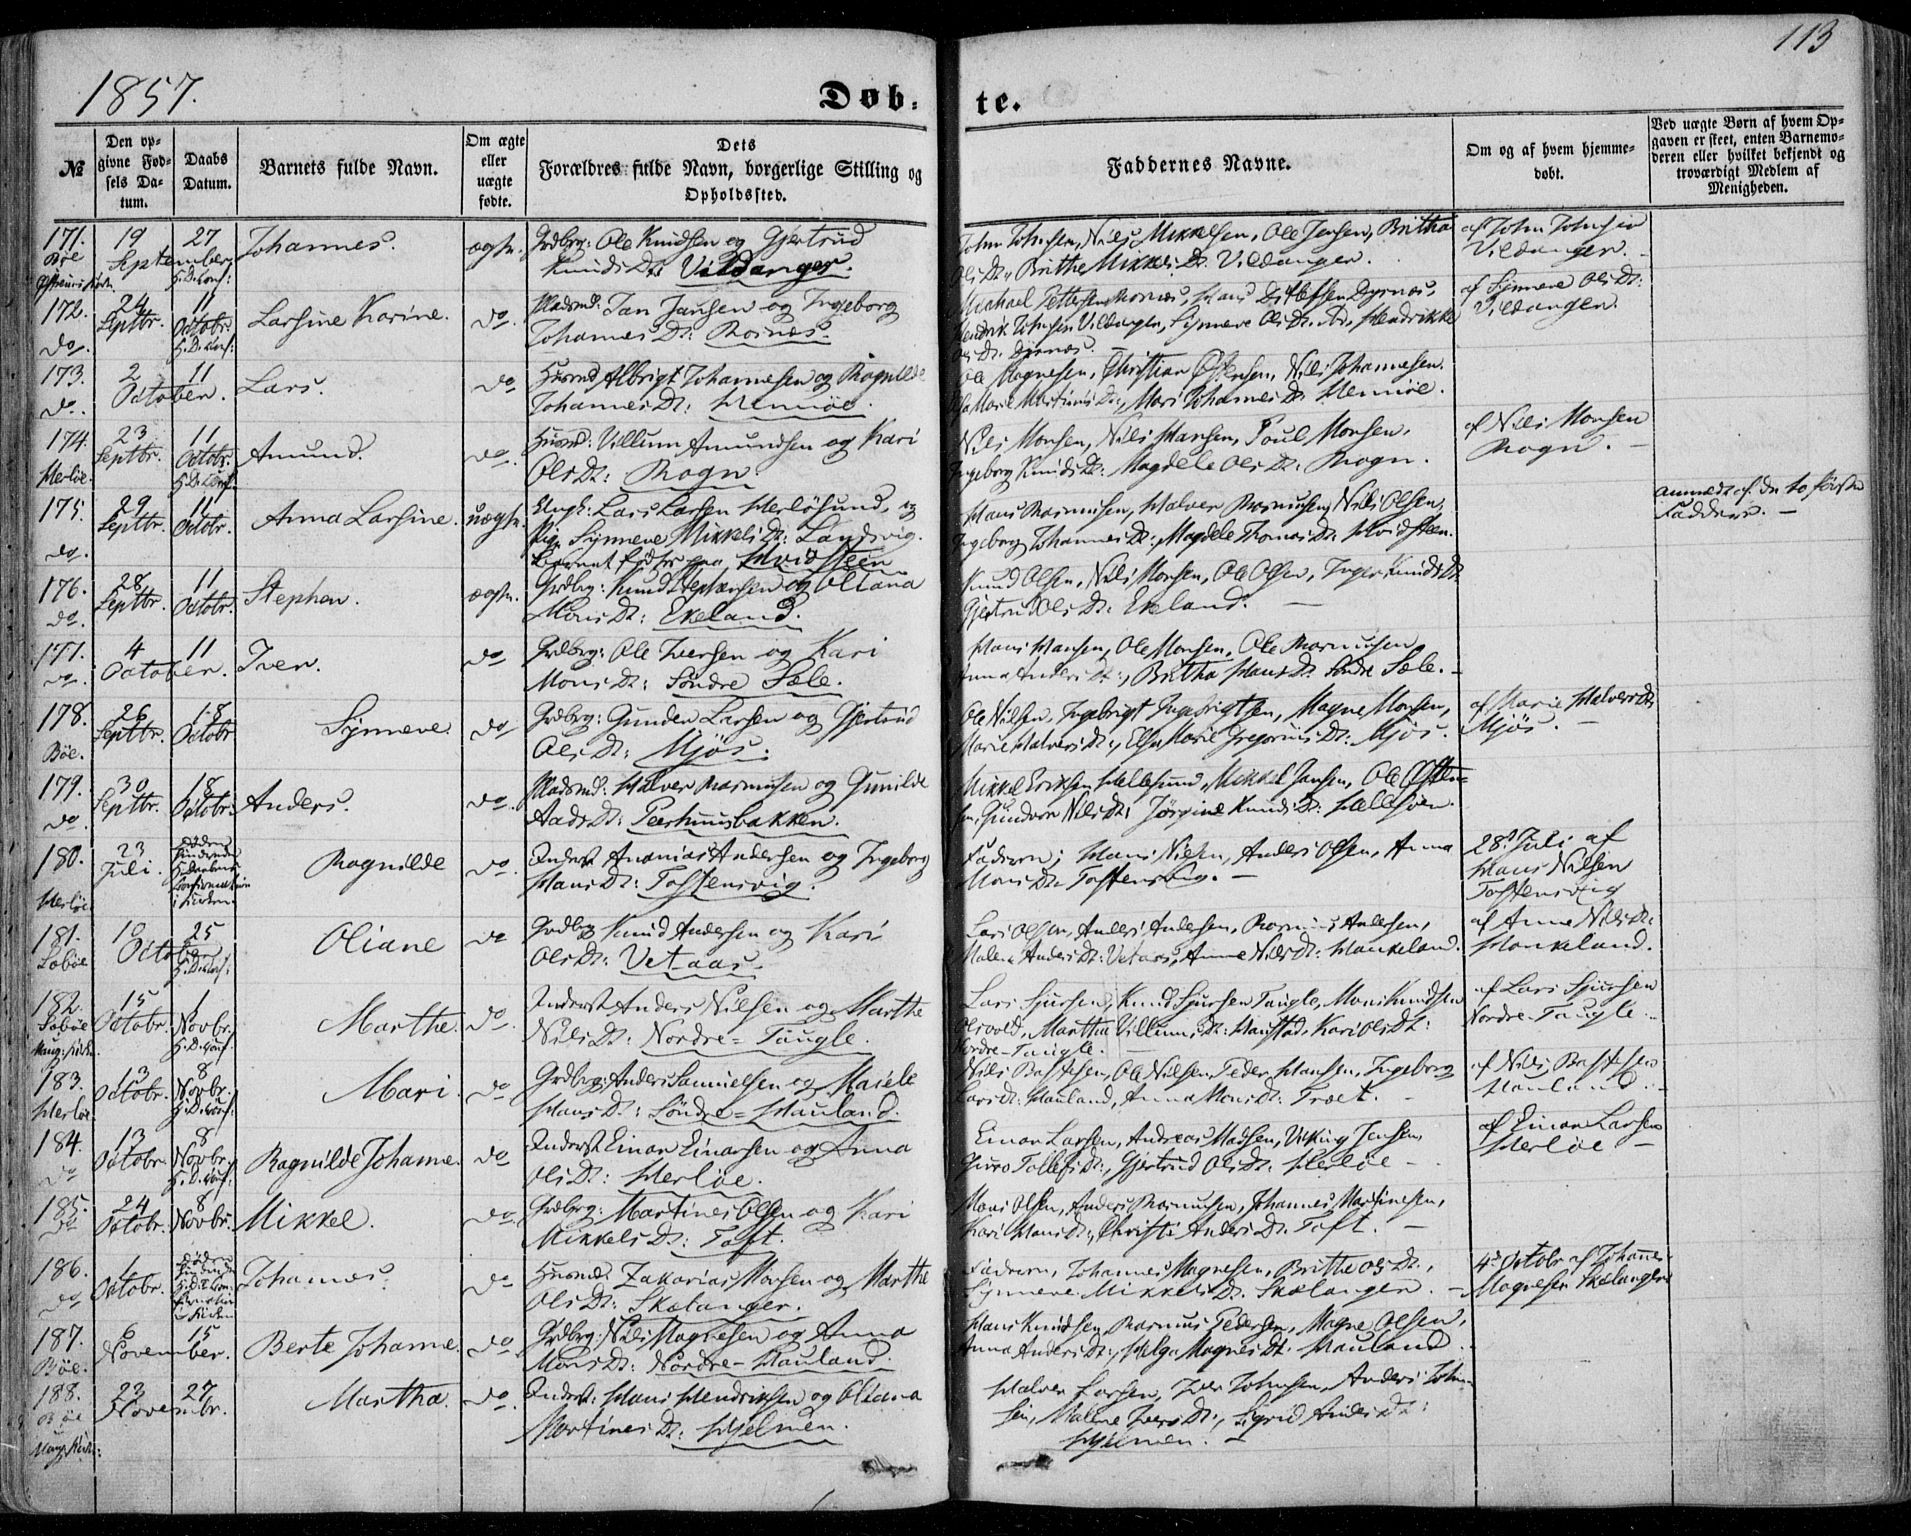 113
1857.
Døb-
te.
№
Den op-
givne Fød-
sels Da-
tum.
Daabs
Datum.
Barnets fulde Navn.
Om ægte
eller
uægte
fødte.
Dets
Forældres fulde Navn, borgerlige Stilling og
Opholdssted.
Faddernes Navne.
Om og af hvem hjemme-
døbt.
Ved uægte Børn af hvem Op-
gaven er skeet, enten Barnemo-
deren eller hvilket bekjendt og
troværdigt Medlem af
Menigheden.
171. 19 27 Johannes. ægte. Grdbrg: Ole Knudsen og Gjertrud
Bøe September
Knuds Dt: Vildanger.
John Johnsen, Nils Mikkelsen, Ole Jensen, Britha
Ols Dt., Brithe Mikkels Dt. Vildanger.
af John Johnsen
Vildanger.
172. 24 11
Septbr. Octobr. Larsine Karine. do. Jan Jansen og Ingeborg
do. Johannes Dt: Rosnæs.
Hendrik Johnsen Vildanger, Synneve Ols Dt.
Ols Dt. Dyrnæs.
af Synneve Ols Dt:
Vildanger.
173. 2 11 Lars. do Husmd. Albrigt Johannesen og Ragnilde
do. October. Johannes Dt: Hennøe.
Ole Magnesen, Christian Nils Johannesen.
Marie Martinus Dt., Mari Johannes Dt. Hennøe.
174. 23 11
Septbr. Octobr. Amund. do. Husmd: Villum Amundsen og Kari
Herløe. Ols Dt: Rogn
Nils Monsen, Nils Hansen, Poul Monsen,
Ingeborg Knuds Dt: Magdele Ols Dt: Rogn.
af Nils Monsen
Rogn.
175. 29 11
Septbr. Octobr. Anna Larsine. uægte. Ungk: Lars Larsen Herløsund, og
do. Pig. Synneve Mikkels Dt: Landsvig.
Barnet født paa Hvidsteen
Hans Rasmusen, Halver Rasmusen, Nils Olsen,
Ingeborg Johannes Dt., Magdele Thomas Dt. Hvidsteen.
anmeldt af de to første
Faddere.
176. 28 11
Septbr. Octobr. Stephen. ægte. Grdbrg: Knud Stephensen og Oliana
do. Mons Dt: Ekeland.
Knud Olsen, Nils Monsen, Ole Olsen, Inger Knuds Dt
Gjertrud Ols Dt: Ekeland.
177. 4 11 Iver. do Grdbrg: Ole Iversen og Kari
do. October. Mons Dt: Søndre Sæle.
Hans Hansen, Ole Monsen, Ole Rasmusen
Anna Anders Dt:, Britha Hans Dt. Søndre Sæle.
178. 26 18
Septbr. Octobr Synneve. do Grdbrg: Gunder Larsen og Gjertrud
Bøe. Ols Dt: Mjøs.
Ole Nilsen, Ingebrigt Ingebrigtsen, Magne Monsen,
Marie Halvers Dt., Else Marie Gregorius Dt: Mjøs.
af Marie Halvers Dt
Mjøs.
179. 30 18
Septbr. Octobr. Anders. do. Halver Rasmusen og Gunilde
do Aads Dt: Peershuusbakken.
Mikkel Eriksen Hellesund, Mikkel Jansen, Ole Østen-
sen, Gundvor Nils Dt: Jørgine Knuds Dt: Hellesøen.
180. 23
Juli. Ragnilde do. Inderst Ananias Andersen og Ingeborg
Herløe. Hans Dt: Toftensvig.
Faderen, Hans Nilsen, Anders Olsen, Anna
Mons Dt. Toftensvig.
28. Juli af
Hans Nilsen
Toftensvig
181. 10 25 Oliane do Grdbrg Knud Andersen og Kari
Sæbøe October Ols Dt: Vetaas.
Lars Olsen, Anders Andersen, Rasmus Andersen,
Malene Anders Dt: Vetaas, Anne Nils Dt: Haukeland.
af Anne Nils Dt:
Haukeland.
182. 15 1
Sæbøe Octobr. Novbr. Marthe. do. Inderst Anders Nilsen og Marthe
Nils Dt: Nordre-Taugle.
Lars Sjursen, Knud Sjursen Taugle, Mons Knudsen
Olsvold, Martha Villums Dt: Haustad, Kari Ols Dt:
Nordre-Taugle.
af Lars Sjursen
Nordre-Taugle.
183. 13 8
Herløe Octobr. Novbr. Mari do Grdbrg: Anders Samuelsen og Mariele
Hans Dt: Søndre-Hauland.
Nils Bastesen, Ole Nilsen, Peder Hansen, Ingeborg
Lars Dt: Hauland, Anna Mons Dt: Træt.
af Nils Bastesen
Hauland.
184. 13 8
do Octobr. Novbr. Ragnilde Johanne. do Inderst Einar Einarsen og Anna
Ols Dt: Herløe.
Einar Larsen, Andreas Madsen, Viking Jensen,
Guro Tollefs Dt., Gjertrud Ols Dt: Herløe
af Einar Larsen
Herløe
185. 24 8
do Octobr. Novbr. Mikkel. do. Grdbrg: Martines Olsen og Kari
Mikkels Dt: Toft.
Hans Olsen, Anders Rasmusen, Johannes Martinesen,
Kari Hans Dt., Christi Anders Dt. Toft.
186. 1
do Octobr. Johannes. do Husmd. Zakarias Monsen og Marthe
Ols Dt: Skælanger.
Faderen, Johannes Magnesen, Brithe Ols Dt.,
Synneve Mikkels Dt. Skælanger.
4de Octobr af Johannes
Magnesen Skælanger
187. 6 15 Berte Johanne. do Grdbrg: Nils Magnesen og Anna
Bøe. November. Mons Dt: Nordre-Hauland.
Hans Knudsen, Rasmus Pedersen, Magne Olsen,
Anna Anders Dt., Helga Magnes Dt. Hauland.
188. 23 27 Martha. do. Inderst: Hans Hendriksen og Oliana
Bøe Novembr. Martines Dt: Hjelmen.
Halver Larsen, Iver Johnsen, Anders John-
sen, Malene Ivers Dt., Sigrid Anders Dt:
Hjelmen.